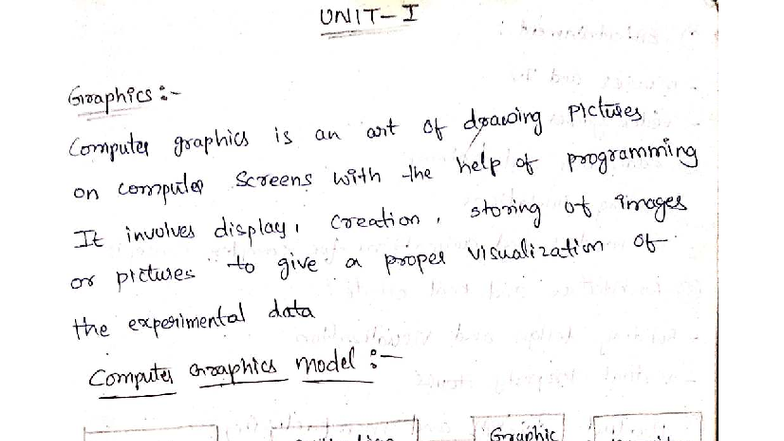 UNIT-I
Graphics:-
Computer graphics is an art of drawing pictures
on computer screens with the help of programming
It involves display, creation, storing of images
or pictures to give a proper visualization of
the experimental data
Computer Graphics Model:-
Graphic